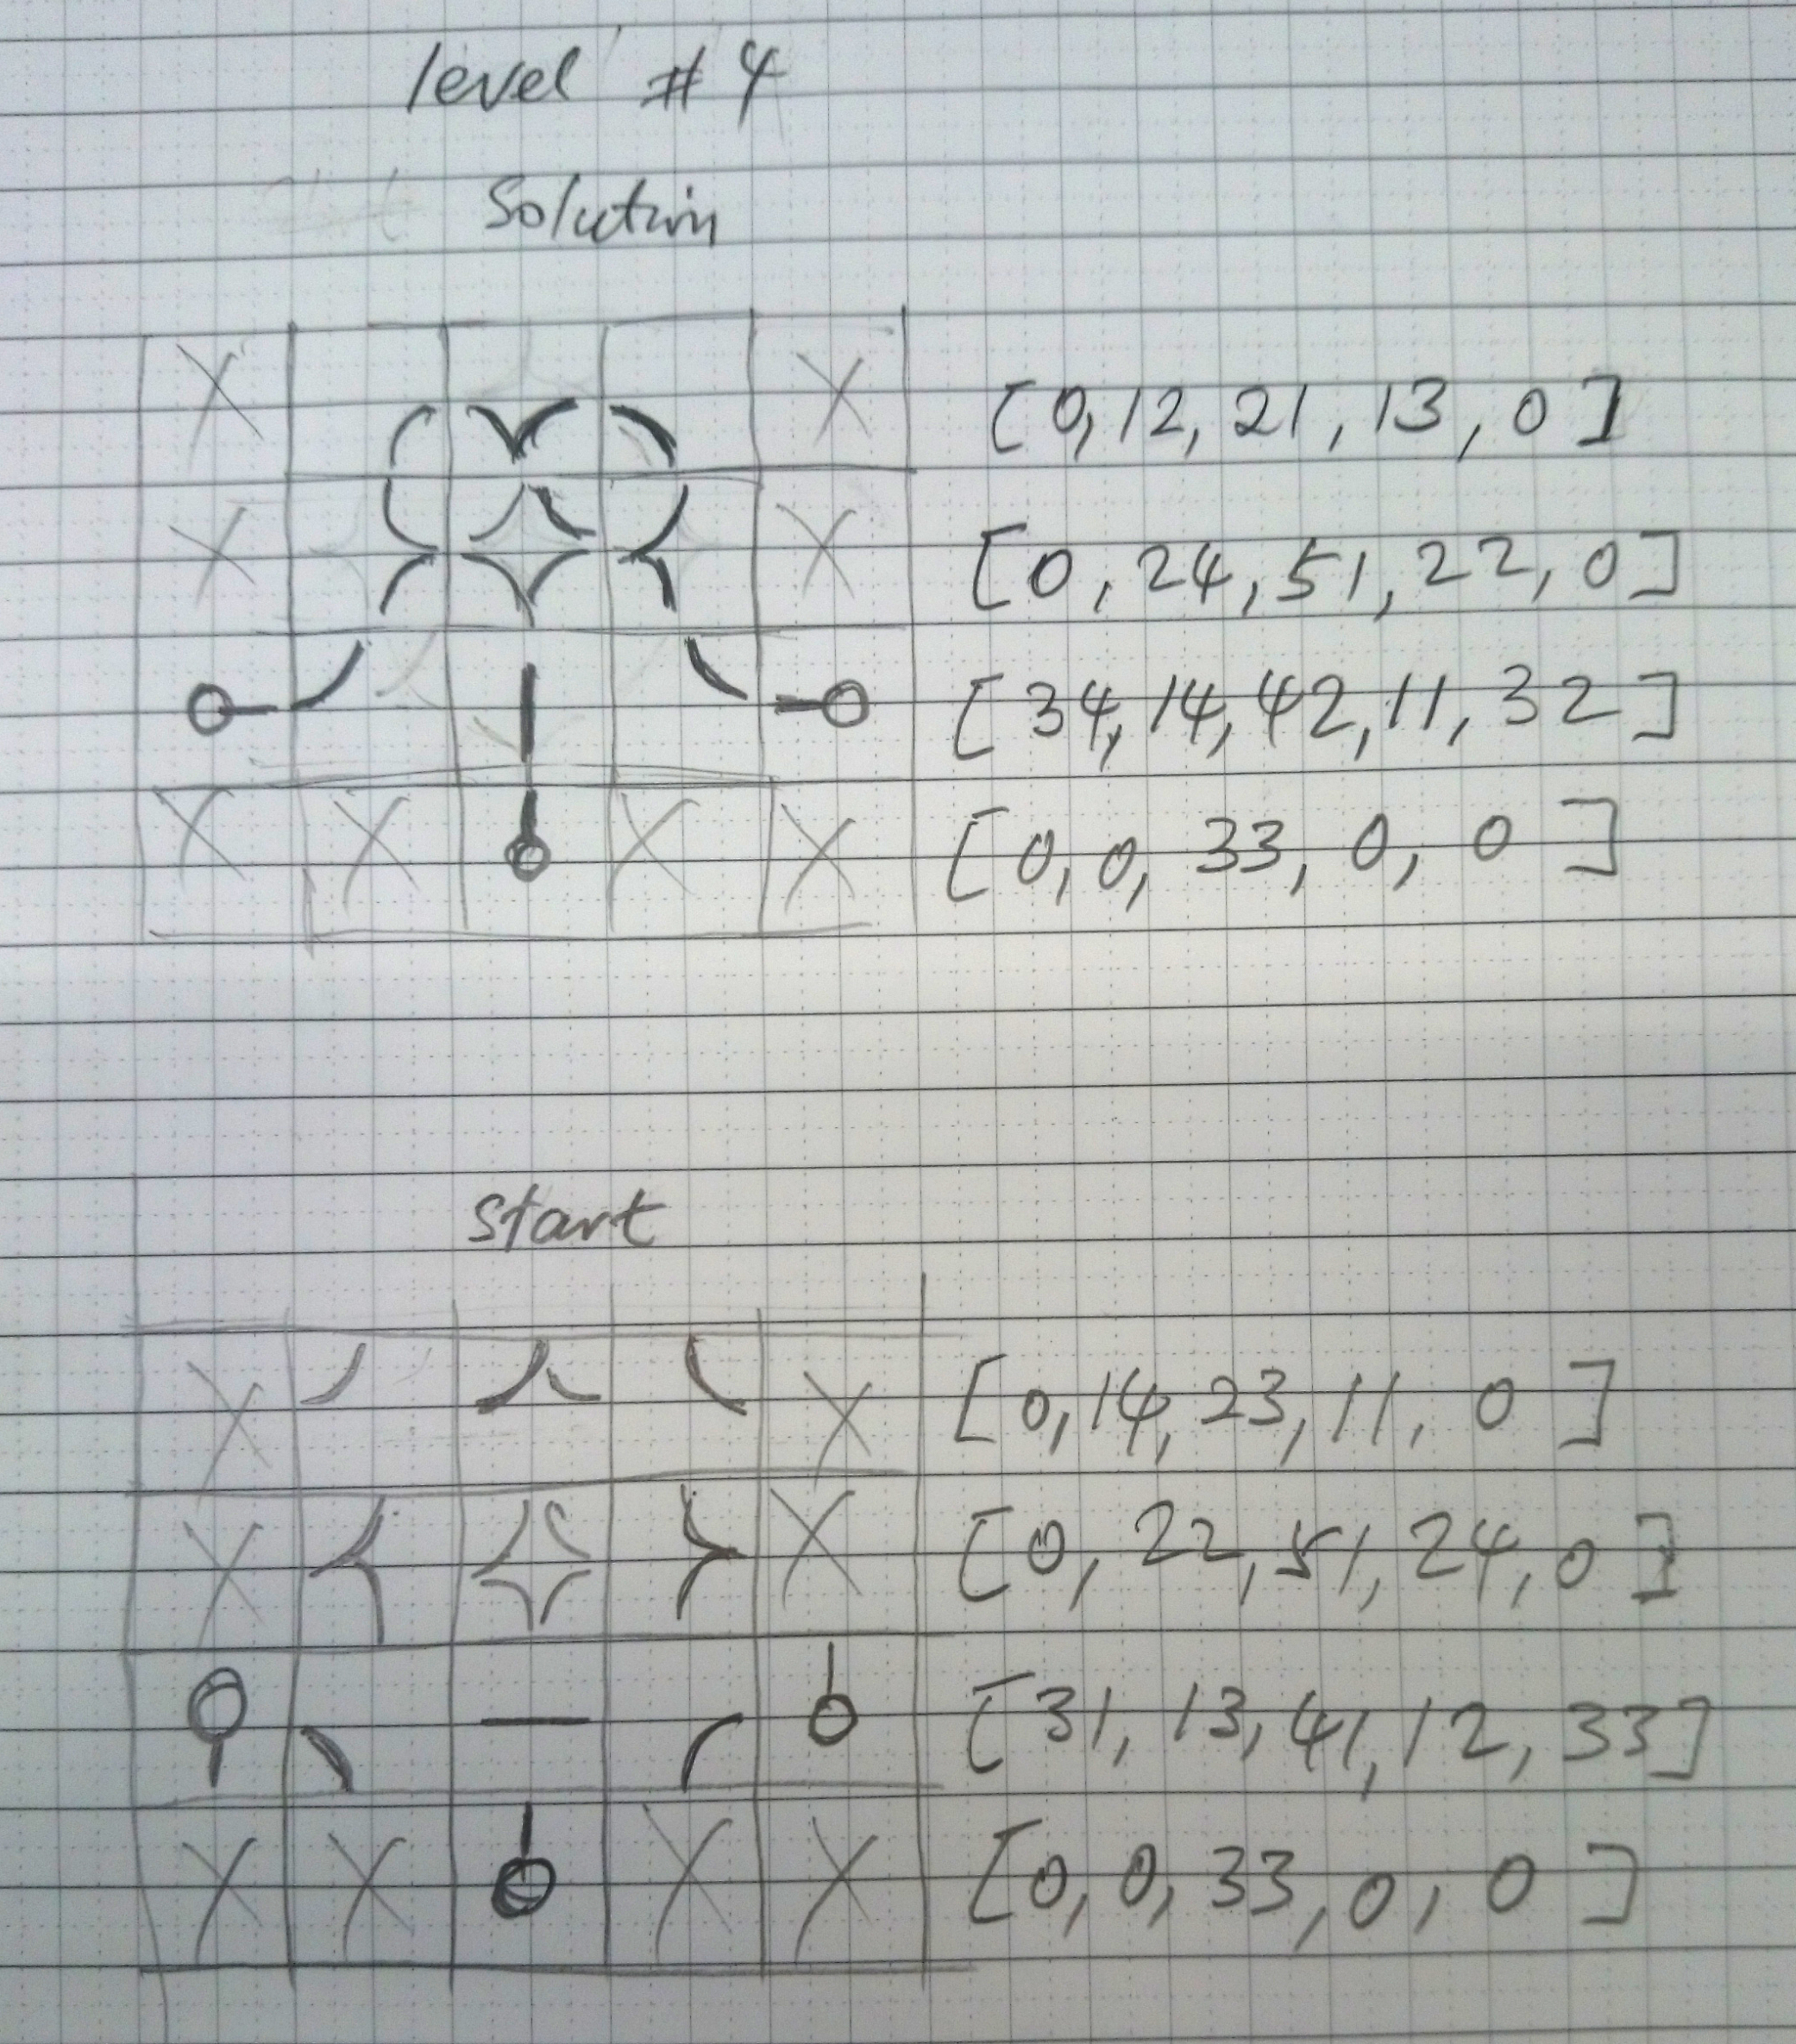 level #4
Solution
[0,12,21,13,0]
[0,24,51,22,0]
[34,14,42,11,32]
[0,0,33,0,0]
start
[0,14,23,11,0]
[0,22,51,24,0]
[31,13,41,12,33]
[0,0,33,0,0]